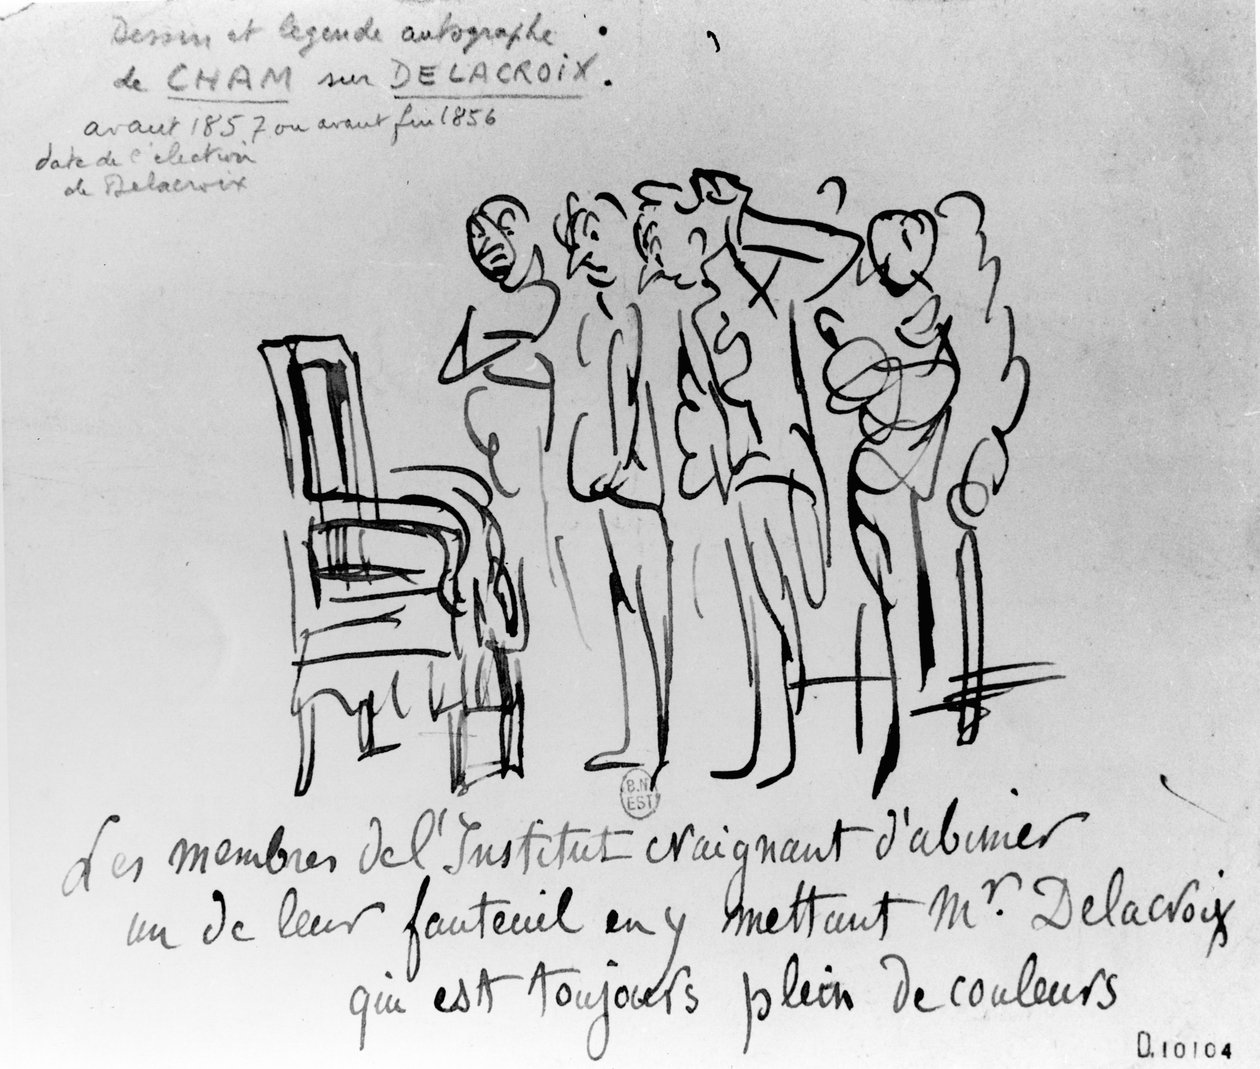 Dessin et légende autographe
de CHAM sur DELACROIX.
avant 1857 ou avant fin 1856
date de l'élection
de Delacroix
B.N.
EST
Les membres de l'Institut craignant d'abimer
un de leur fauteuil en y mettant Mr. Delacroix
qui est toujours plein de couleurs
D.10104